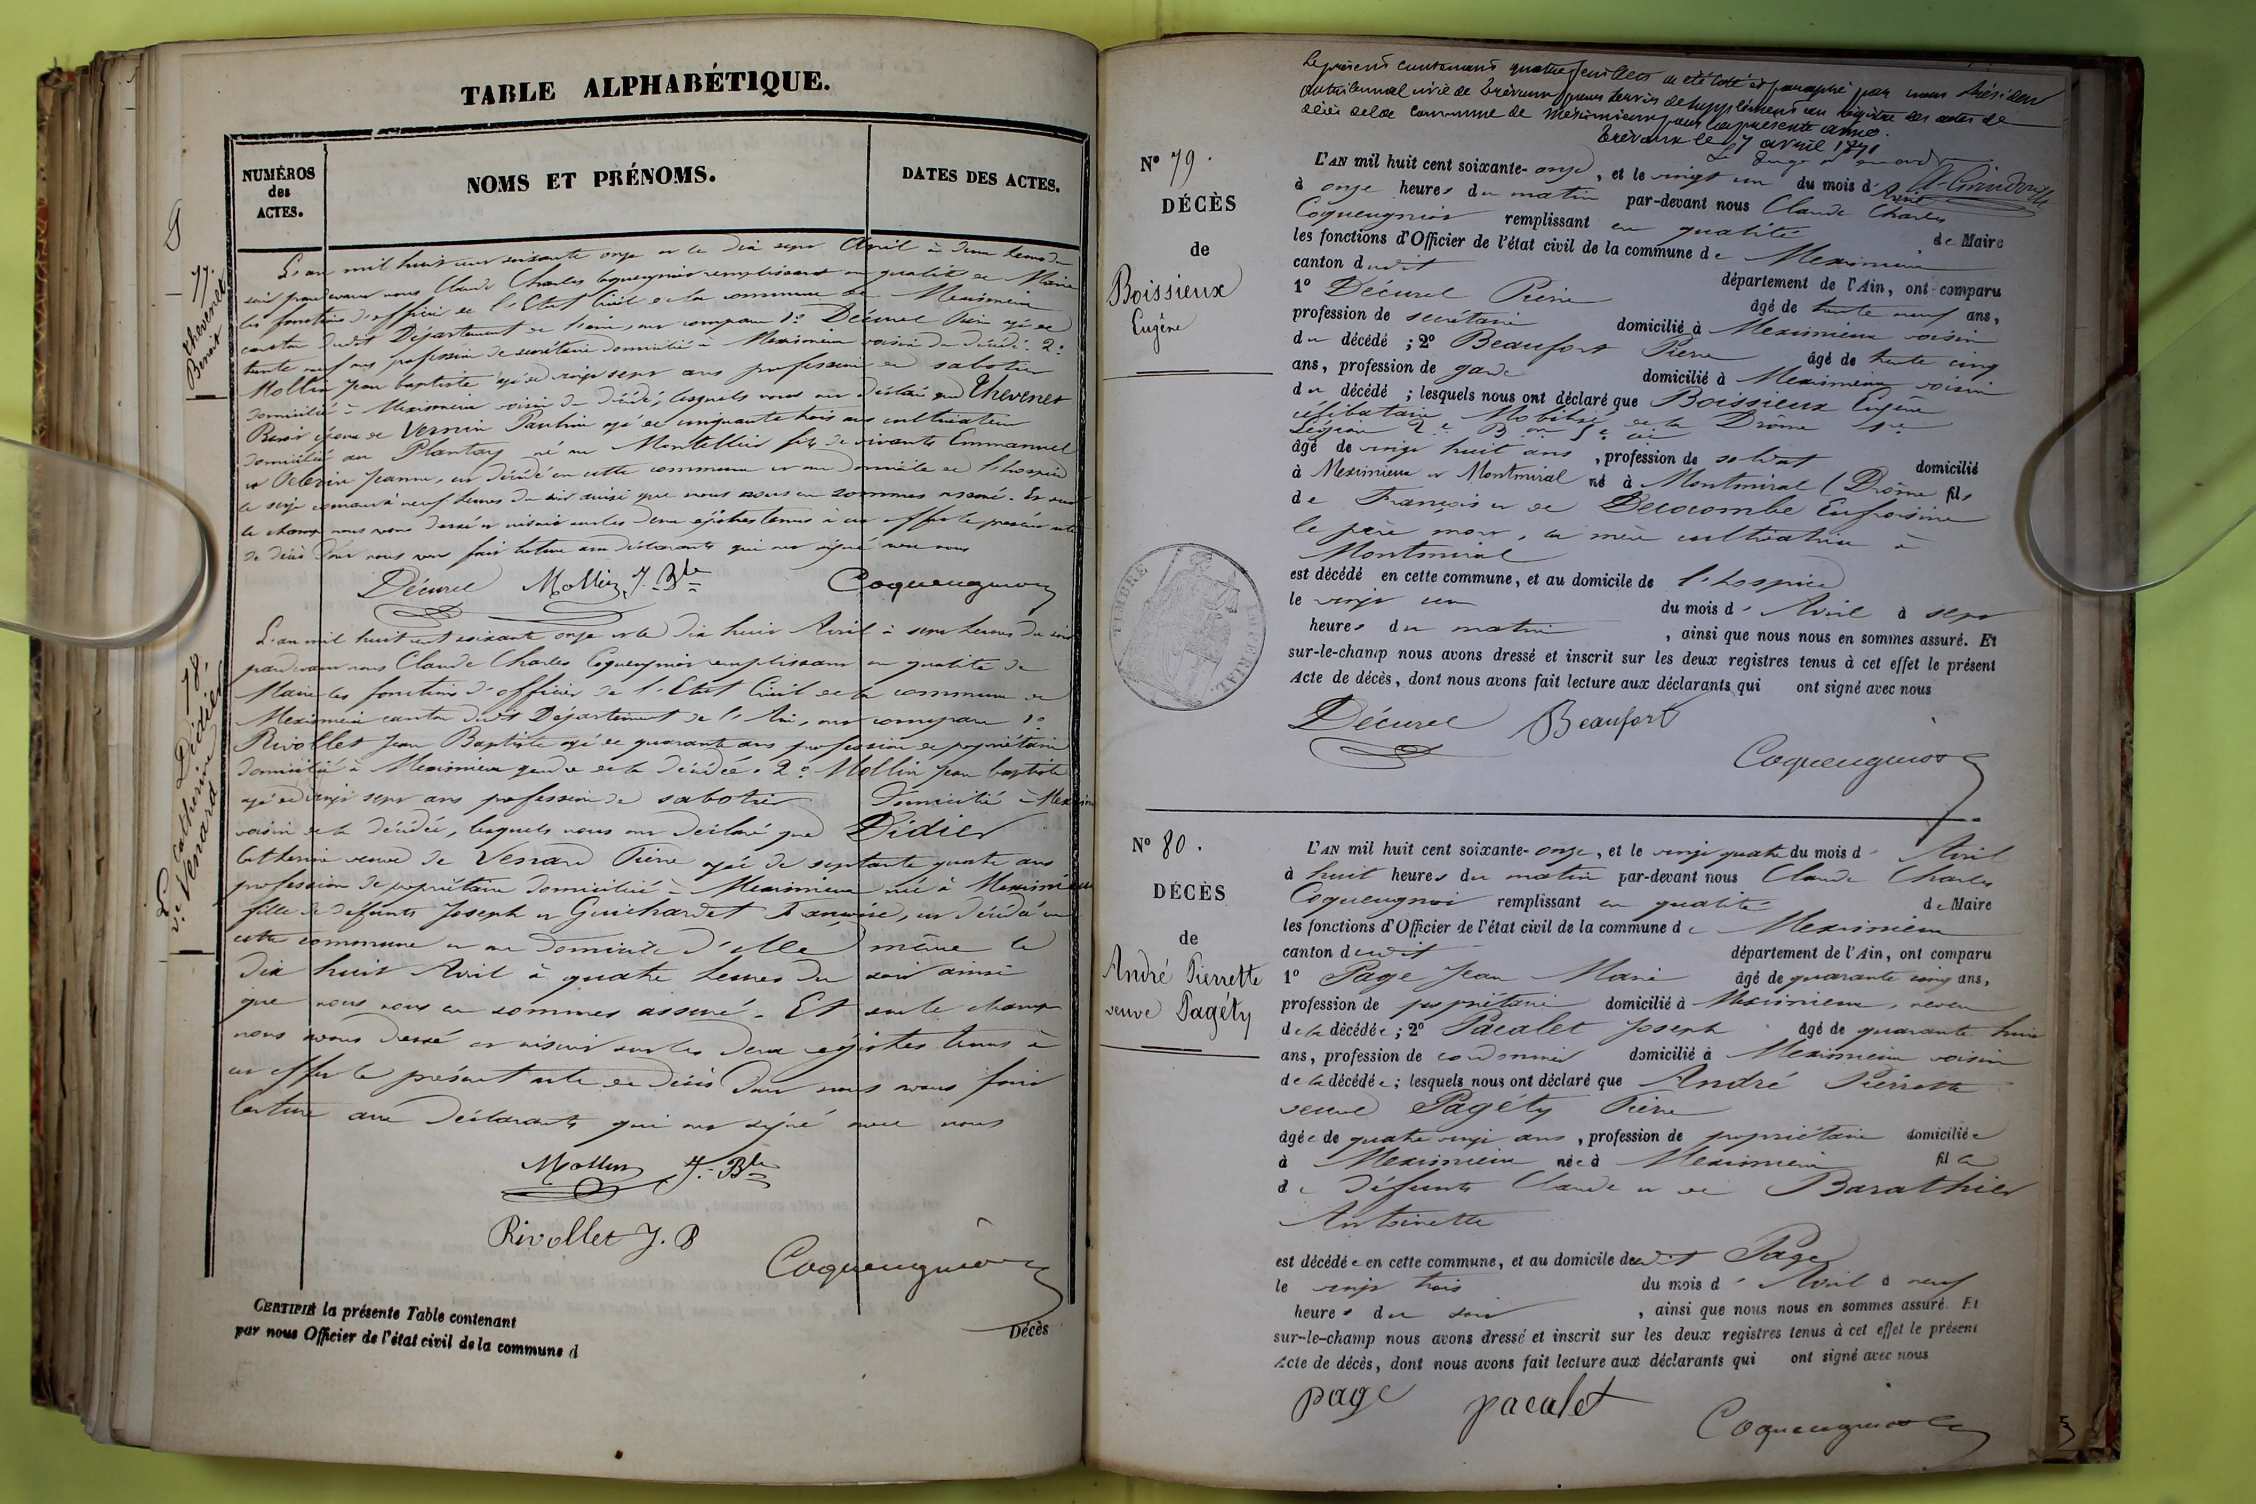 TABLE ALPHABÉTIQUE.
NUMÉROS
des
ACTES.
NOMS ET PRÉNOMS.
DATES DES ACTES.
77.
Thevenet
Benoit
L'an mil huit cent soixante onze et le dix sept Avril à deux heures du
soir pardevant nous Claude Charles Coqueugniot remplissant en qualité de Maire
les fonctions d'officier de l'Etat Civil de la commune de Meximieux
canton dudit Département de l'ain, ont comparu 1º Décurel Pierre agé de
trente neuf ans profession de secrétaire domicilié à Meximieux voisin du décédé. 2º
Mollin Jean baptiste agé de vingt sept ans profession de sabotier
domicilié à Meximieux voisin du décédé, lesquels nous ont déclaré que Thevenet
Benoit époux de Vernin Pauline agé de cinquante trois ans cultivateur
domicilié au Plantay né au Montellier fils de vivants Emmanuel
et Jeanne, est décédé en cette commune et au domicile de l'hospice
le seize courant à neuf heures du soir ainsi que nous nous en sommes assuré. Et sur
le champ nous avons dressé et inscrit sur les deux registres tenus à cet effet le présent acte
de décès dont nous avons fait lecture aux déclarants qui ont signé avec nous
Décurel Mollin J. Bte Coqueugniot
78.
Didier
Catherine
Ve Venard
L'an mil huit cent soixante onze et le dix huit Avril à sept heures du soir
pardevant nous Claude Charles Coqueugniot remplissant en qualité de
Maire les fonctions d'officier de l'Etat Civil de la commune de
Meximieux canton dudit Département de l'Ain, ont comparu 1º
Rivollet Jean Baptiste agé de quarante ans profession de propriétaire
domicilié à Meximieux gendre de la décédée. 2º Mollin Jean baptiste
agé de vingt sept ans profession de sabotier domicilié à Meximieux
voisin de la décédée, lesquels nous ont déclaré que Didier
Catherine veuve de Venard Pierre agée de septante quatre ans
profession de propriétaire domiciliée à Meximieux née à Meximieux
fille de défunts Joseph et Guichardet Françoise, est décédée en
cette commune et au domicile d'elle même le
dix huit Avril à quatre heures du soir ainsi
que nous nous en sommes assuré. Et sur le champ
nous avons dressé et inscrit sur les deux registres tenus à
cet effet le présent acte de décès dont nous avons fait
lecture aux déclarants qui ont signé avec nous
Mollin J. Bte
Rivollet J. B
Coqueugniot
CERTIFIÉ la présente Table contenant
Décès
par nous Officier de l'état civil de la commune d
Le présent contenant quatre feuillets a été coté et paraphé par nous Président
du tribunal civil de Trévoux pour servir de supplément au registre des actes de
décès de la commune de Meximieux pour la présente année.
Trévoux le 7 avril 1871
Nº 79.
DÉCÈS
de
Boissieux
Eugène
L'AN mil huit cent soixante-onze, et le vingt un du mois d'Avril
à onze heures du matin par-devant nous Claude Charles
Coqueugniot remplissant en qualité de Maire
les fonctions d'Officier de l'état civil de la commune de Meximieux
canton dudit département de l'Ain, ont comparu
1º Décurel Pierre âgé de trente neuf ans,
profession de secrétaire domicilié à Meximieux voisin
du décédé ; 2º Beaufort Pierre âgé de trente cinq
ans, profession de garde domicilié à Meximieux voisin
du décédé ; lesquels nous ont déclaré que Boissieux Eugène
célibataire Mobilisé de la Drôme 1re
Légion 2e Bon 5e cie
âgé de vingt huit ans, profession de soldat domicilié
à Meximieux et Montmiral né à Montmiral (Drôme fils
de François et de Decocombe Eufroisine
le père mort, la mère cultivatrice à
Montmiral
est décédé en cette commune, et au domicile de l'hospice
le vingt un du mois d'Avril à sept
heures du matin, ainsi que nous nous en sommes assuré. Et
sur-le-champ nous avons dressé et inscrit sur les deux registres tenus à cet effet le présent
Acte de décès, dont nous avons fait lecture aux déclarants qui ont signé avec nous
TIMBRE IMPÉRIAL.
Décurel Beaufort
Coqueugniot
Nº 80.
DÉCÈS
de
André Pierrette
veuve Pagéty
L'AN mil huit cent soixante-onze, et le vingt quatre du mois d'Avril
à huit heures du matin par-devant nous Claude Charles
Coqueugniot remplissant en qualité de Maire
les fonctions d'Officier de l'état civil de la commune de Meximieux
canton dudit département de l'Ain, ont comparu
1º Page Jean Marie âgé de quarante cinq ans,
profession de propriétaire domicilié à Meximieux, neveu
de la décédée ; 2º Pacalet Joseph âgé de quarante huit
ans, profession de cordonnier domicilié à Meximieux voisin
de la décédée ; lesquels nous ont déclaré que André Pierrette
veuve Pagéty Pierre
âgée de quatre vingt ans, profession de propriétaire domiciliée
à Meximieux née à Meximieux fille
de défunts Claude et de Barathier
Antoinette
est décédée en cette commune, et au domicile dudit Page
le vingt trois du mois d'Avril à neuf
heures du soir, ainsi que nous nous en sommes assuré. Et
sur-le-champ nous avons dressé et inscrit sur les deux registres tenus à cet effet le présent
Acte de décès, dont nous avons fait lecture aux déclarants qui ont signé avec nous
page pacalet
Coqueugniot